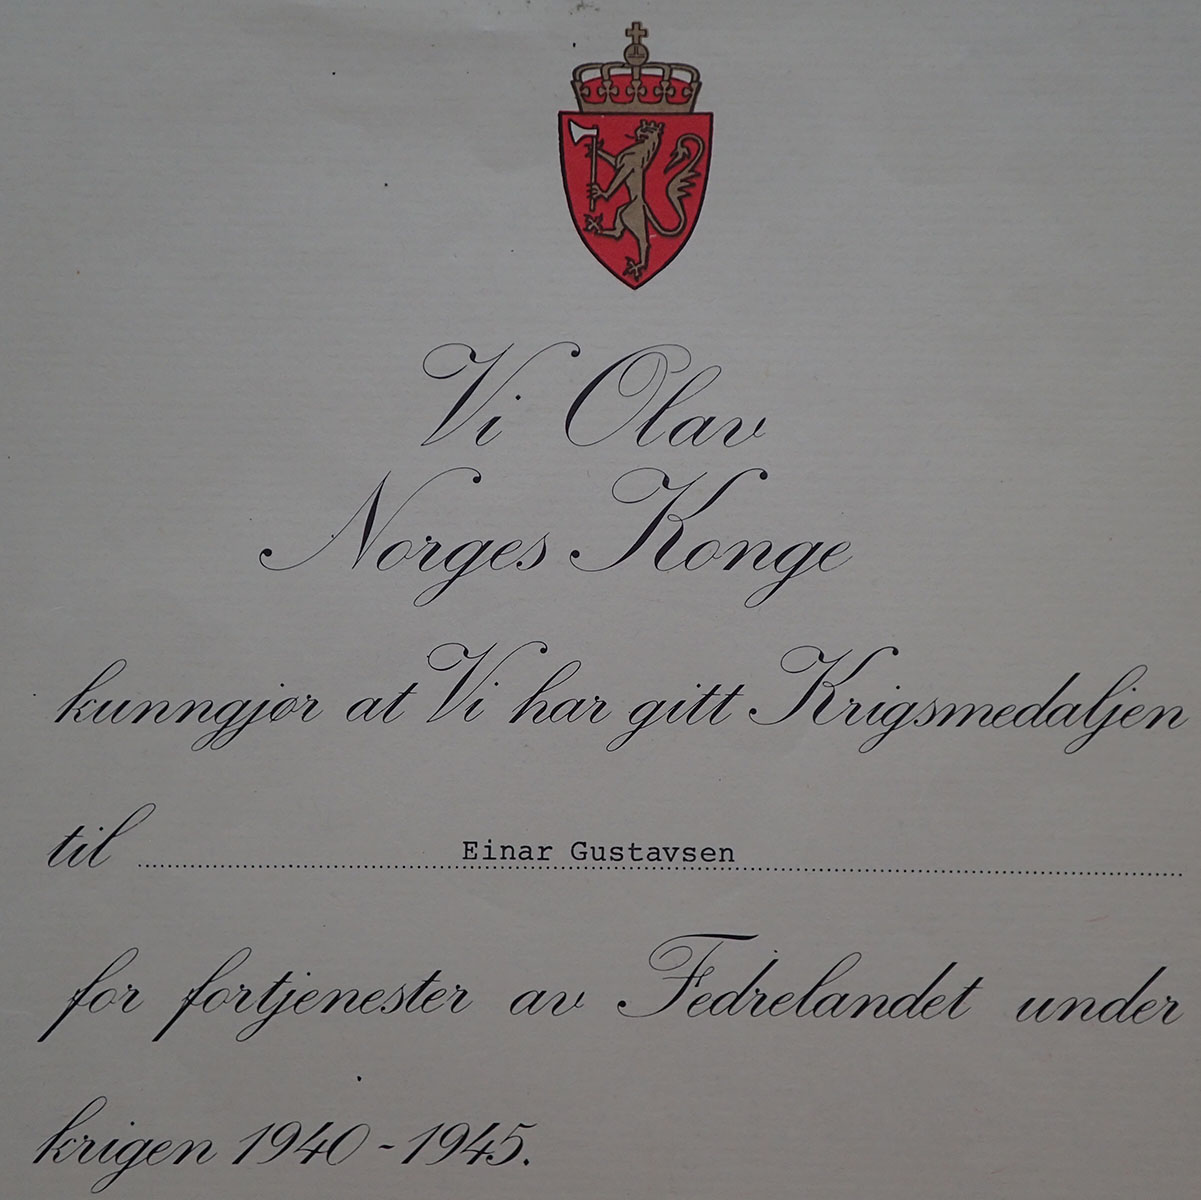 Vi Olav
Norges Konge
kunngjør at Vi har gitt Krigsmedaljen
til Einar Gustavsen
for fortjenester av Fedrelandet under
krigen 1940-1945.